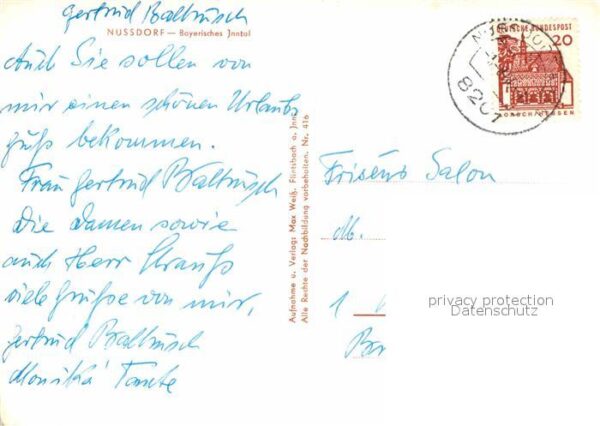 Gertrud Baltrusch
NUSSDORF — Bayerisches Jnntal
Auch Sie sollen von
mir einen schönen Urlaubs
gruß bekommen.
Frau Gertrud Baltrusch
Die Damen sowie
auch Herr Strauß
viele Grüße von mir,
Gertrud Baltrusch
Monika Tante
Aufnahme u. Verlag: Max Weiß, Flintsbach a. Jnn
Alle Rechte der Nachbildung vorbehalten. Nr. 416
DEUTSCHE BUNDESPOST
20
LORSCH/HESSEN
8201
Friseur Salon
1
privacy protection
Datenschutz